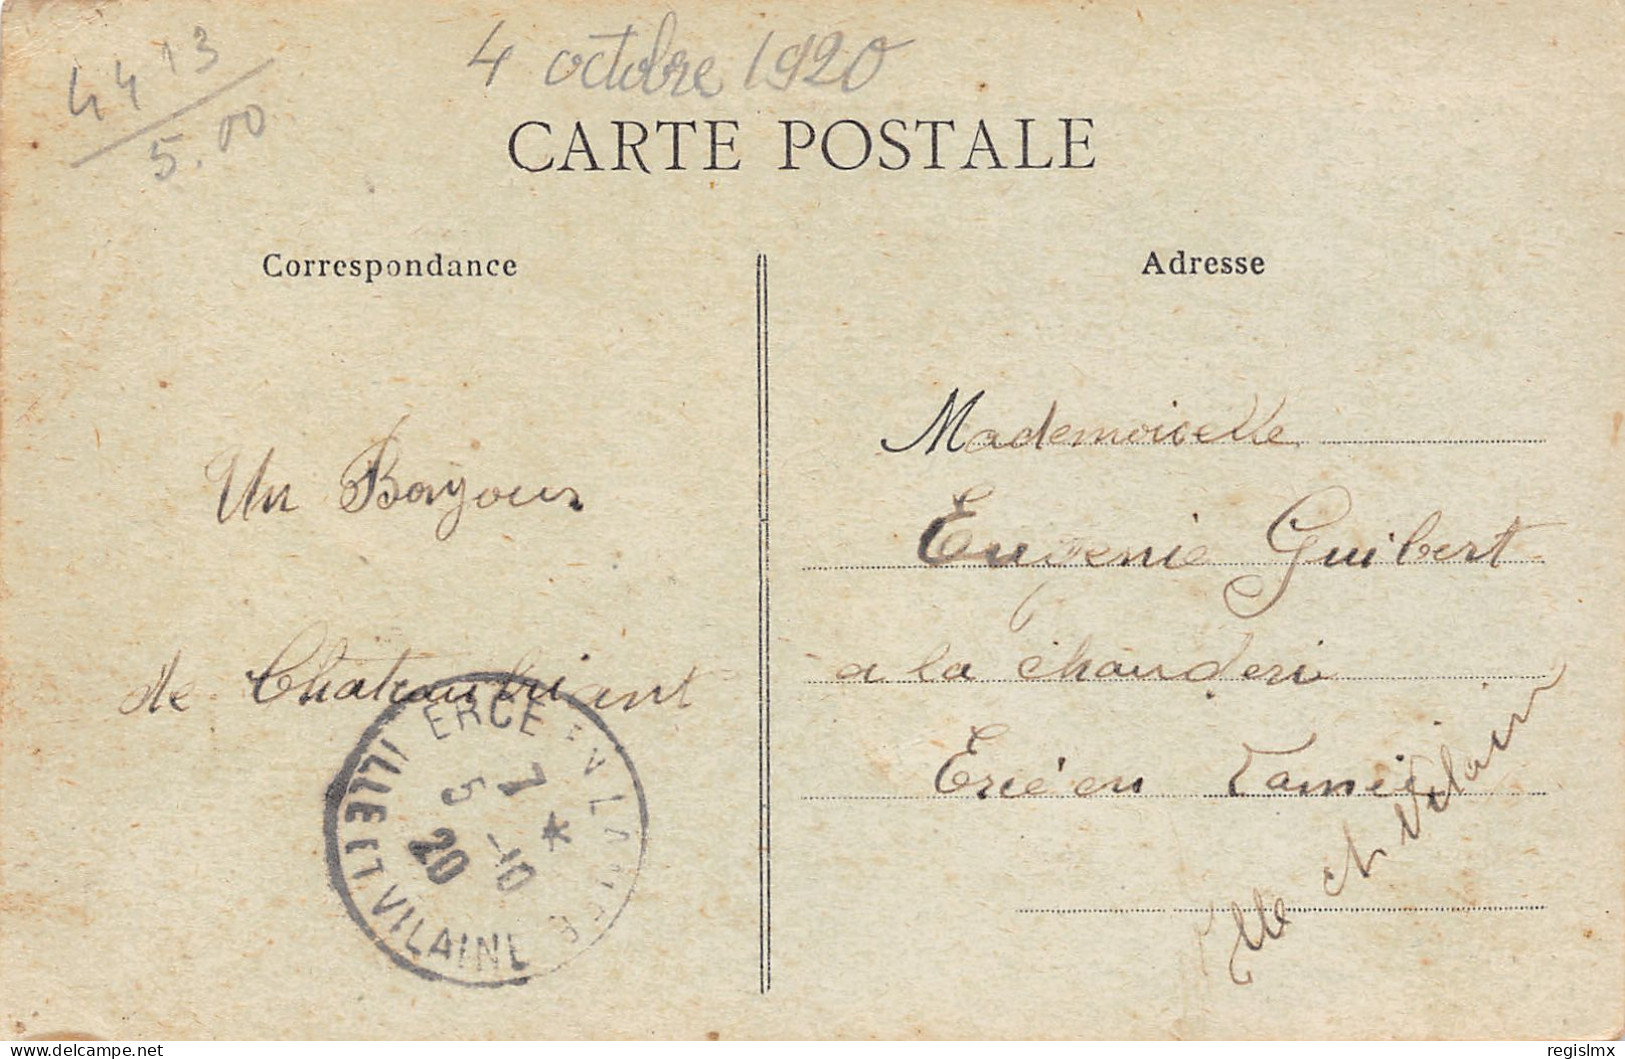 4 octobre 1920
44 13
5.00
CARTE POSTALE
Correspondance
Adresse
Un Bonjour
de Chateaubriant
Mademoiselle
Eugenie Guibert
a la chauderi
Ercé en Lamée
Ille et Vilaine
ERCE EN LAMEE
ILLE ET VILAINE
7 *
5 -10
20
delcampe.net
regislmx